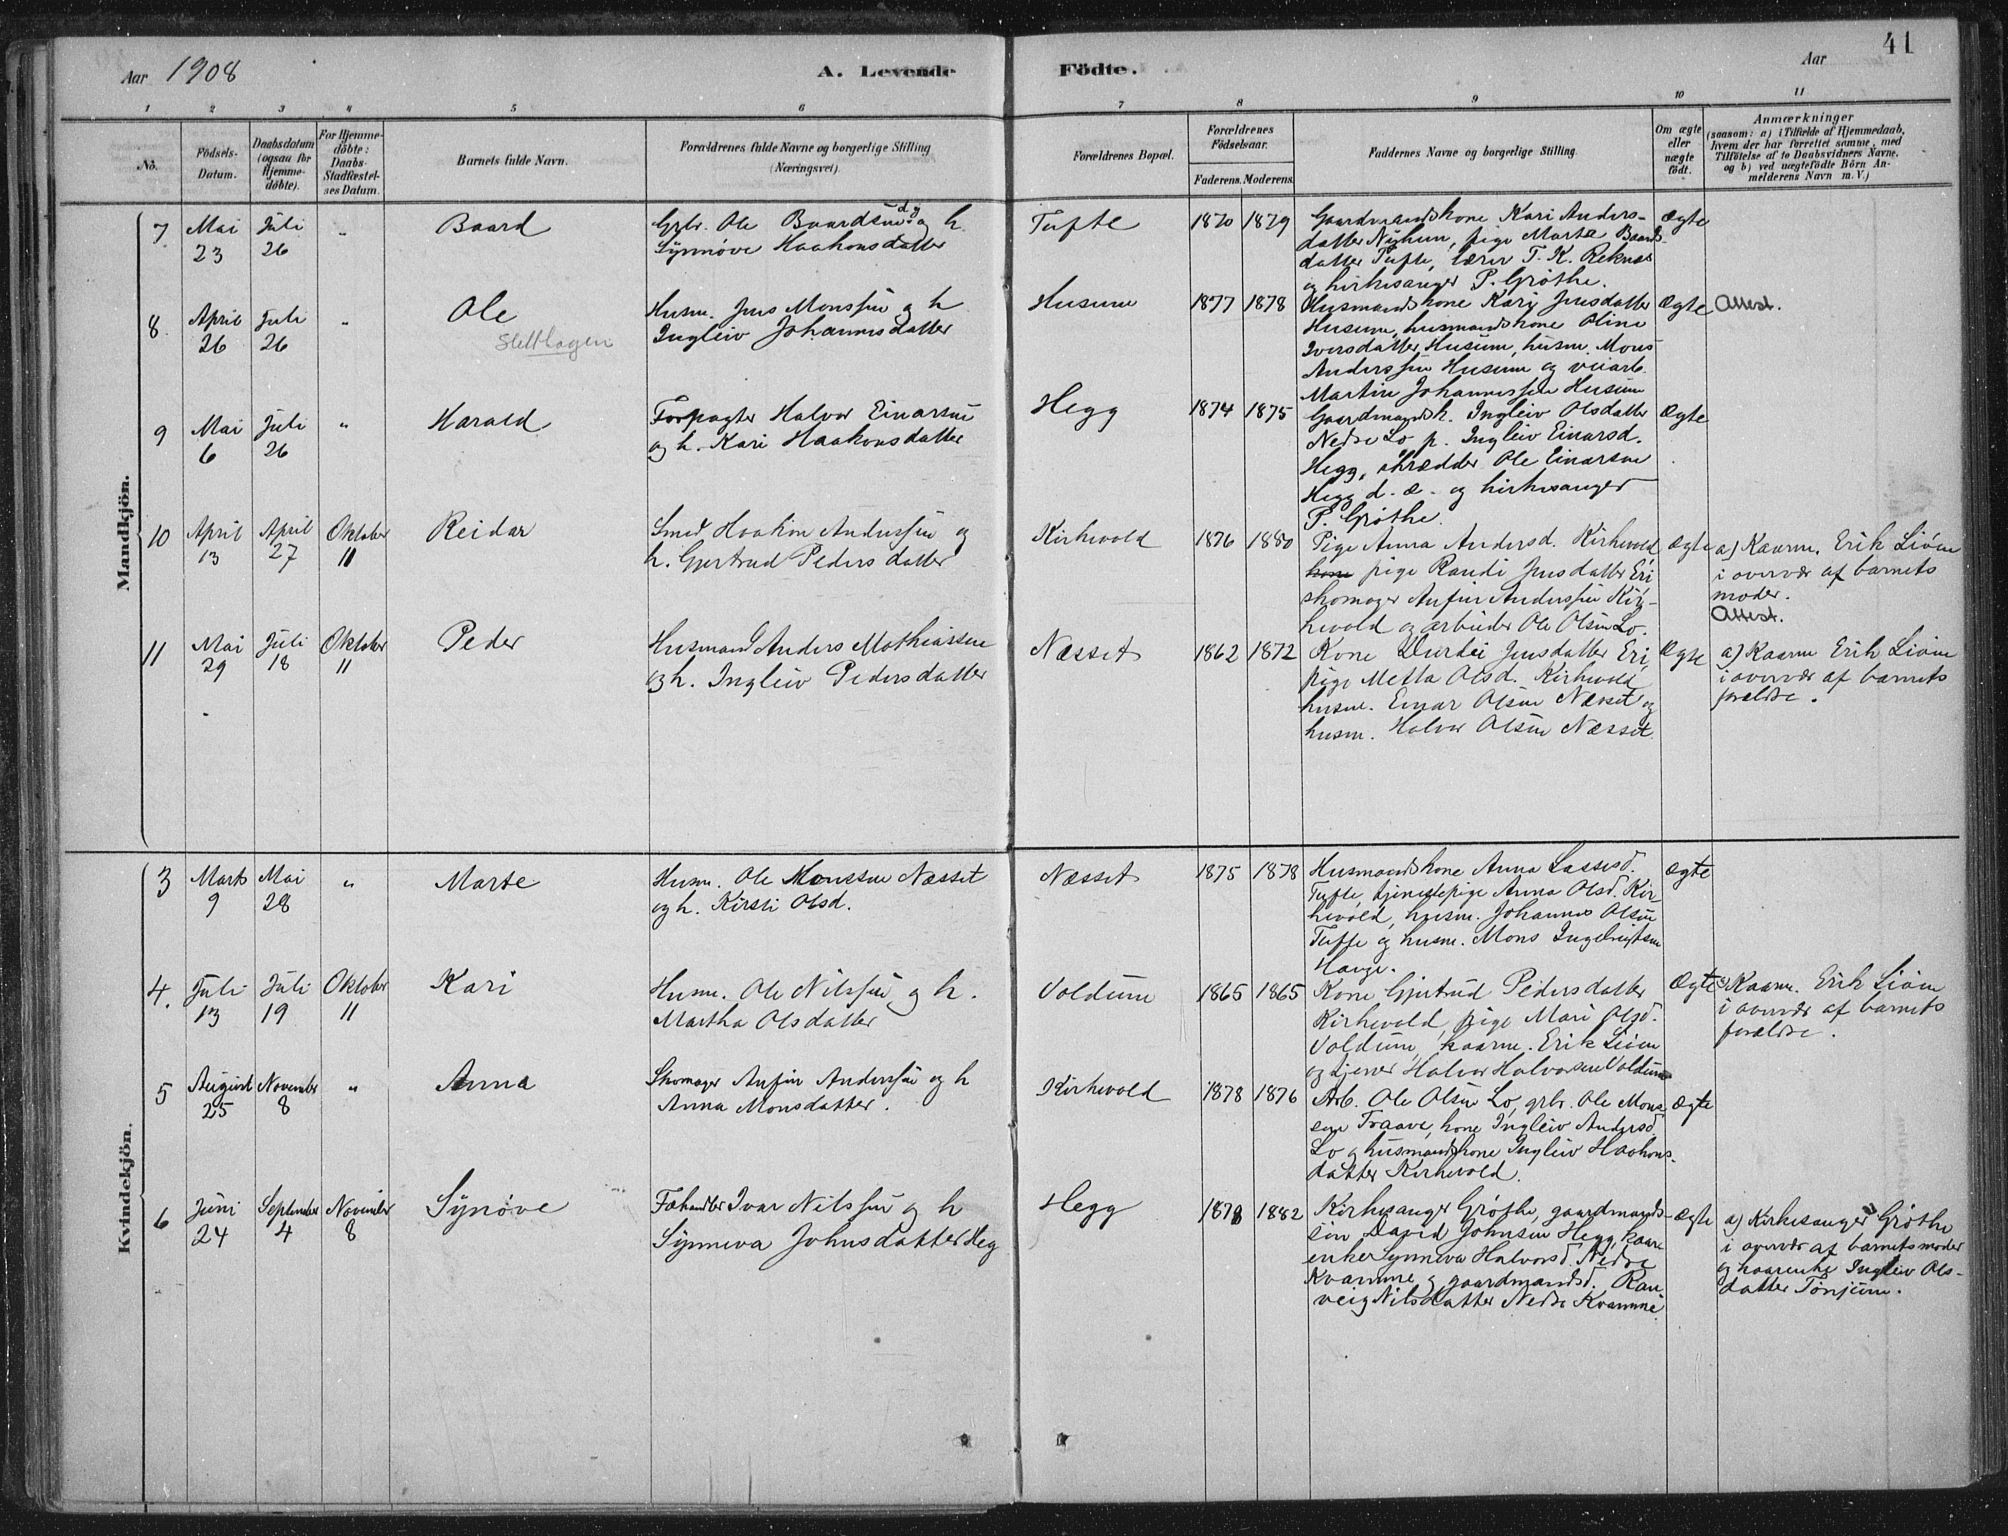 Aar 1908
A. Levende Födte.
Aar
41
1 2 3 4 5 6 7 8 9 10 11
No.
Födsels-Datum.
Daabsdatum (ogsaa for Hjemme-döbte).
For Hjemme-döbte: Daabs-Stadfæstel-ses Datum.
Barnets fulde Navn.
Forældrenes fulde Navne og borgerlige Stilling (Næringsvei).
Forældrenes Bopæl.
Forældrenes Födselsaar.
Faderens. Moderens.
Faddernes Navne og borgerlige Stilling.
Om ægte eller uægte födt.
Anmærkninger
(saasom: a) i Tilfælde af Hjemmedaab,
hvem der har forrettet samme, med
Tilföielse af to Daabsvidners Navne,
og b) ved uægtefödte Börn An-
melderens Navn m. V.)
Mandkjön.
7 Mai 23 Juli 26 " Baard
Grbr. Ole Baardsen og h.
Synnøve Haakonsdatter
Tufte 1870 1879
Gaardmandskone Kari Anders-
datter Nyhun, pige Marte Baards-
datter Tufte, lærer T. K. Reknes
og kirkesanger P. Grøthe.
ægte
8. April 26 Juli 26 " Ole
Sletthagen
Husm. Jens Monssen og h
Ingleiv Johannesdatter
Husum 1877 1878
Husmandskone Kari Jensdatter
Husum, husmandskone Oline
Iversdatter Husum, husm. Mons
Anderssen Husum og veiarb.
Martin Johannessen Husum
ægte Attest.
9 Mai 6 Juli 26 " Harald
Forpagter Halvor Einarsen
og h. Kari Haakonsdatter
Hegg 1874 1875
Gaardmandsk. Ingleiv Olsdatter
Nedre Lo, p. Ingleiv Einarsd.
Hegg, skrædder Ole Einarsen
Hegg d. æ. og kirkesanger
P. Grøthe.
ægte
10 April 13 April 27 Oktober 11 Reidar
Smed Haakon Anderssen og
h. Gjertrud Pedersdatter
Kirkevold 1876 1880
Pige Anna Andersd. Kirkevold
kone pige Randi Jensdatter Eri,
skomager Anfin Anderssen Kir-
kevold og arbeider Ole Olsen Lo.
ægte
a) Kaarm. Erik Liøen
i overvær af barnets
moder.
Attest.
11 Mai 29 Juli 18 Oktober 11 Peder
Husmand Anders Mathiassen
og h. Ingleiv Pedersdatter
Næsset 1862 1872
Kone Durdei Jensdatter Eri,
pige Metta Olsd. Kirkevold
husm. Einar Olsen Næsset og
husm. Halvor Olsen Næsset.
ægte
a) Kaarm Erik Liøen
i overvær af barnets
forældre.
Kvindekjön.
3 Marts 9 Mai 28 " Marte
Husm. Ole Monssen Næsset
og h. Kirsti Olsd.
Næsset 1875 1878
Husmandskone Anna Lassesd.
Tufte, tjenestepige Anna Olsd. Kir-
kevold, husm. Johannes Olsen
Tufte og husm. Mons Ingebrigtsen
Hauge.
ægte
4. Juli 13 Juli 19 Oktober 11 Kari
Husm. Ole Nilssen og h.
Martha Olsdatter
Voldum 1865 1865
Kone Gjertrud Pedersdatter
Kirkevold, pige Mari Olsd.
Voldum, kaarm. Erik Liøen
og tjener Halvor Halvorsen Voldum
ægte
a) Kaarm. Erik Liøen
i overvær af barnets
forældre.
5 August 25 November 8 " Anna
Skomager Anfin Anderssen og h
Anna Monsdatter.
Kirkevold 1878 1876
Arb. Ole Olsen Lo, grbr. Ole Mons-
sen Traave, kone Ingleiv Andersd.
Lo og husmandskone Ingleiv Haakons-
datter Kirkevold.
ægte
6 Juni 24 September 4 November 8 Synøve
Fæhandler Ivar Nilssen og h
Synneva Johnsdatter Heg
Hegg 1878 1882
Kirkesanger Grøthe, gaardmands-
søn David Johnsen Hegg, kaar-
enke Synneva Halvorsd. Nedre
Kvamme og gaardmandsd. Ran-
veig Nilsdatter Nedre Kvamme.
ægte
a) Kirkesanger Grøthe
i overvær af barnets moder
og kaarenke Ingleiv Ols-
datter Tønjum.